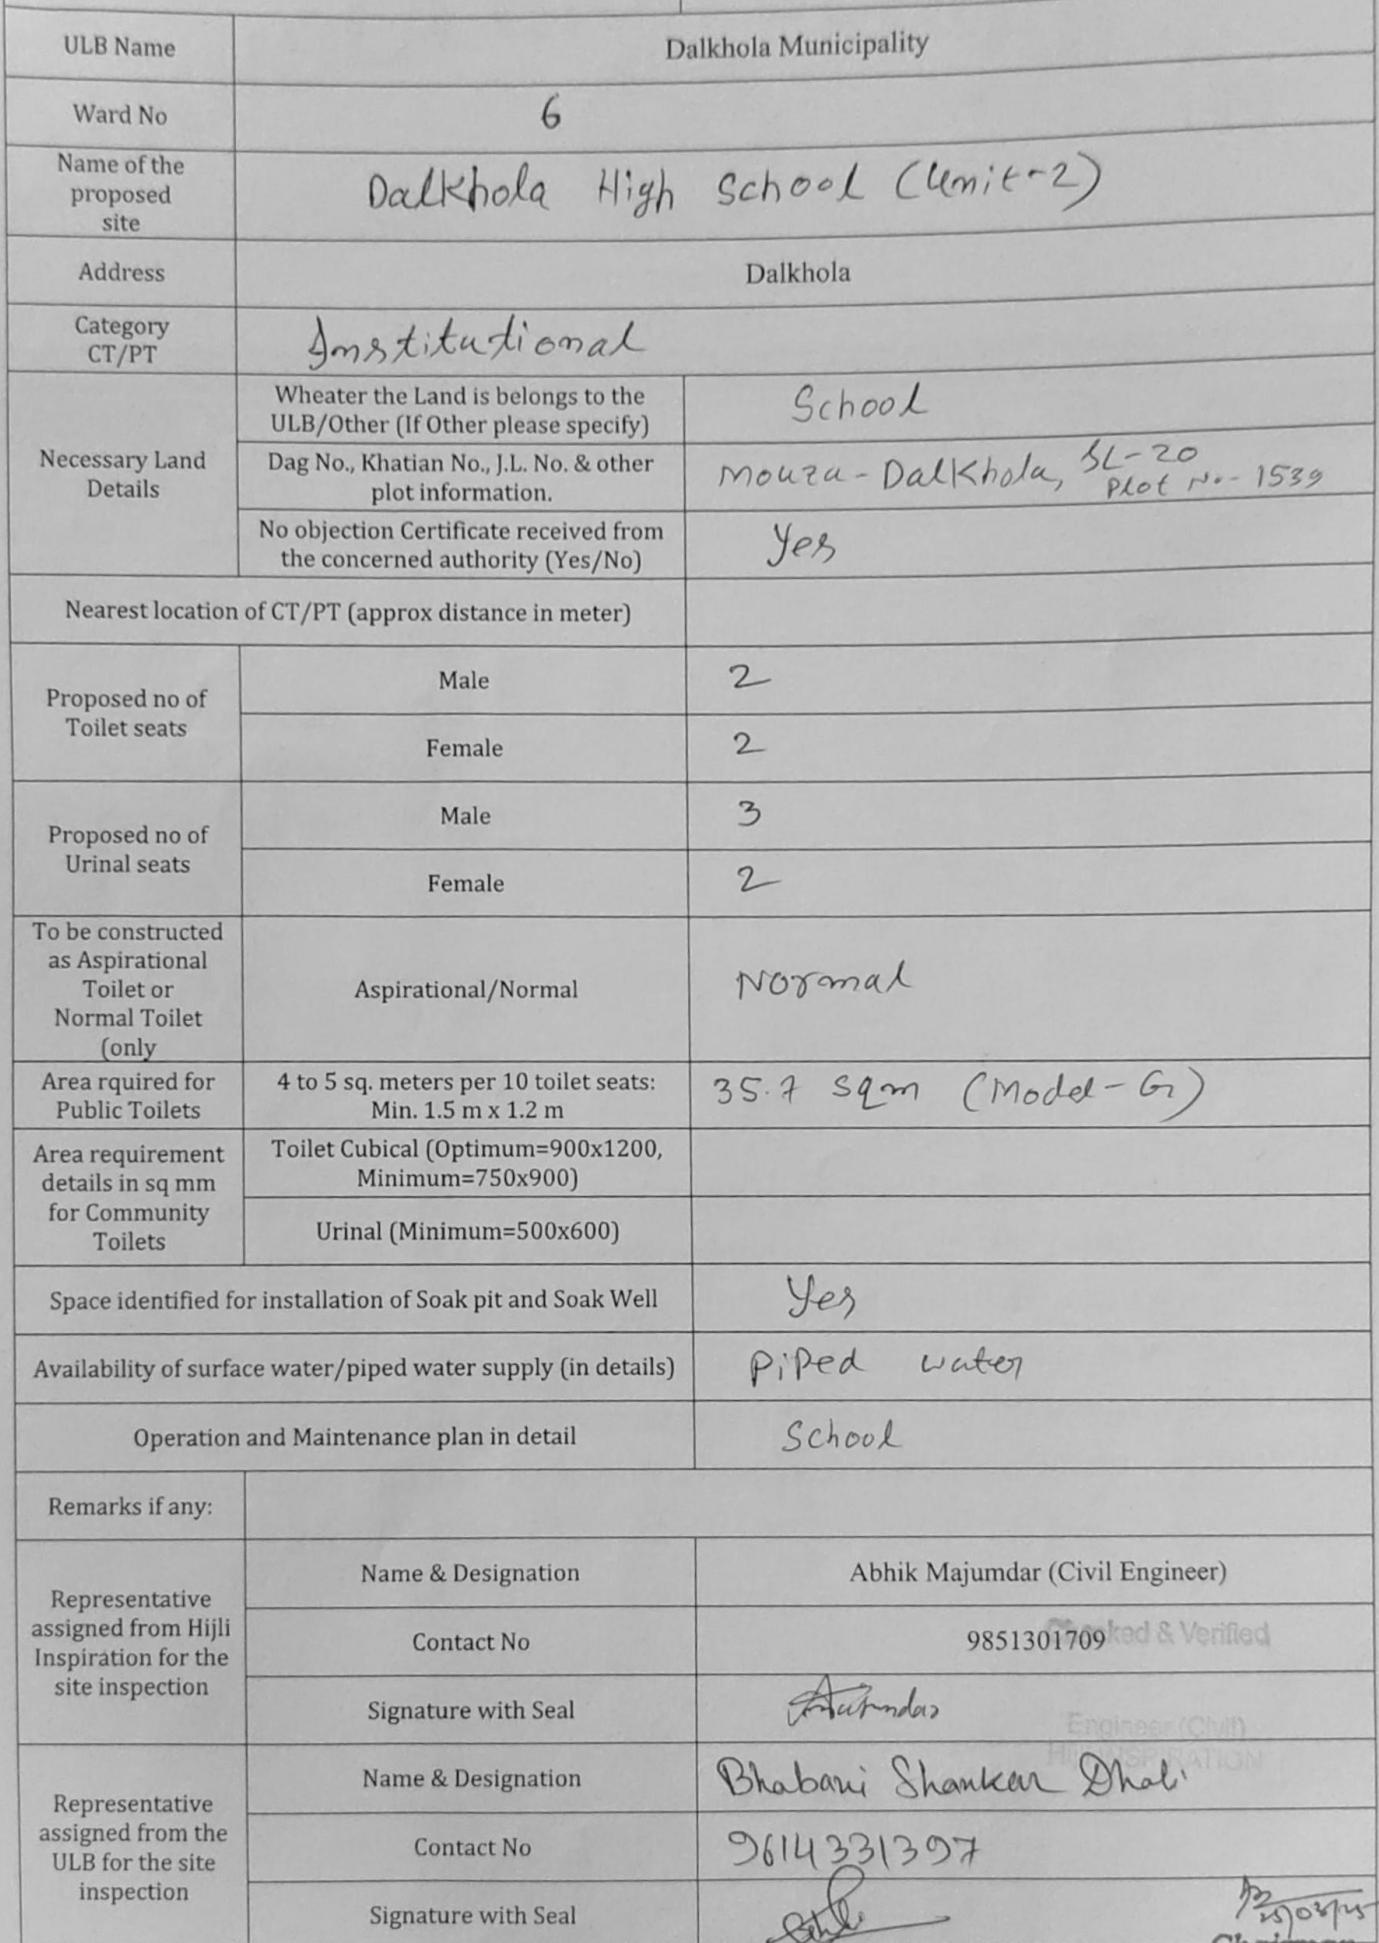 ULB Name
Dalkhola Municipality
Ward No
6
Name of the
proposed
site
Dalkhola High School (Unit-2)
Address
Dalkhola
Category
CT/PT
Institutional
Necessary Land
Details
Wheater the Land is belongs to the
ULB/Other (If Other please specify)
School
Dag No., Khatian No., J.L. No. & other
plot information.
Mouza - Dalkhola, SL-20
Plot No - 1539
No objection Certificate received from
the concerned authority (Yes/No)
Yes
Nearest location of CT/PT (approx distance in meter)
Proposed no of
Toilet seats
Male
2
Female
2
Proposed no of
Urinal seats
Male
3
Female
2
To be constructed
as Aspirational
Toilet or
Normal Toilet
(only
Aspirational/Normal
Normal
Area rquired for
Public Toilets
4 to 5 sq. meters per 10 toilet seats:
Min. 1.5 m x 1.2 m
35.7 sqm (Model-G)
Area requirement
details in sq mm
for Community
Toilets
Toilet Cubical (Optimum=900x1200,
Minimum=750x900)
Urinal (Minimum=500x600)
Space identified for installation of Soak pit and Soak Well
Yes
Availability of surface water/piped water supply (in details)
Piped water
Operation and Maintenance plan in detail
School
Remarks if any:
Representative
assigned from Hijli
Inspiration for the
site inspection
Name & Designation
Abhik Majumdar (Civil Engineer)
Contact No
9851301709
& Verified
Signature with Seal
Engineer (Civil)
Representative
assigned from the
ULB for the site
inspection
Name & Designation
Bhabani Shankar Dhali
Contact No
9614331397
Signature with Seal
25/03/25